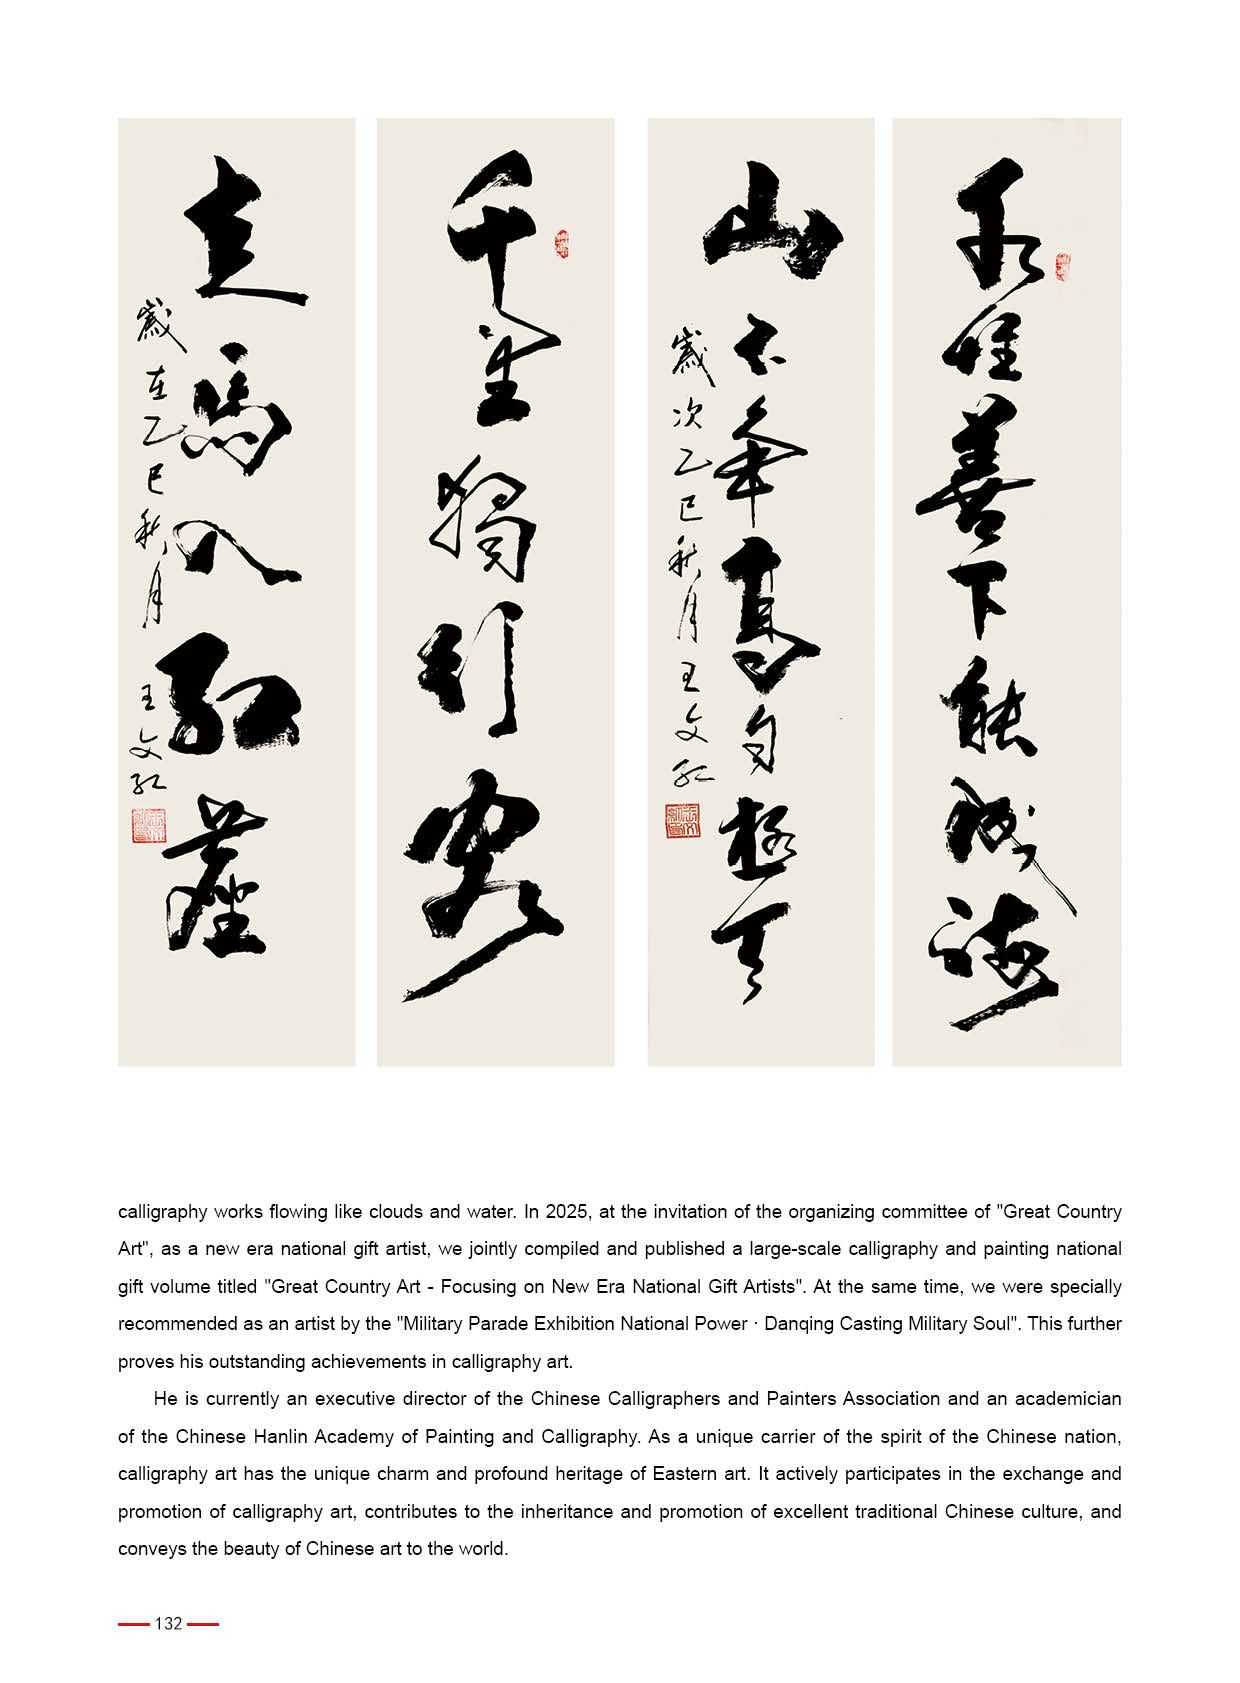 水惟善下能成海
山不争高自極天
歲次乙巳秋月王文紅
千里獨行客
走馬入紅塵
歲在乙巳秋月 王文紅
calligraphy works flowing like clouds and water. In 2025, at the invitation of the organizing committee of "Great Country
Art", as a new era national gift artist, we jointly compiled and published a large-scale calligraphy and painting national
gift volume titled "Great Country Art - Focusing on New Era National Gift Artists". At the same time, we were specially
recommended as an artist by the "Military Parade Exhibition National Power · Danqing Casting Military Soul". This further
proves his outstanding achievements in calligraphy art.
He is currently an executive director of the Chinese Calligraphers and Painters Association and an academician
of the Chinese Hanlin Academy of Painting and Calligraphy. As a unique carrier of the spirit of the Chinese nation,
calligraphy art has the unique charm and profound heritage of Eastern art. It actively participates in the exchange and
promotion of calligraphy art, contributes to the inheritance and promotion of excellent traditional Chinese culture, and
conveys the beauty of Chinese art to the world.
132